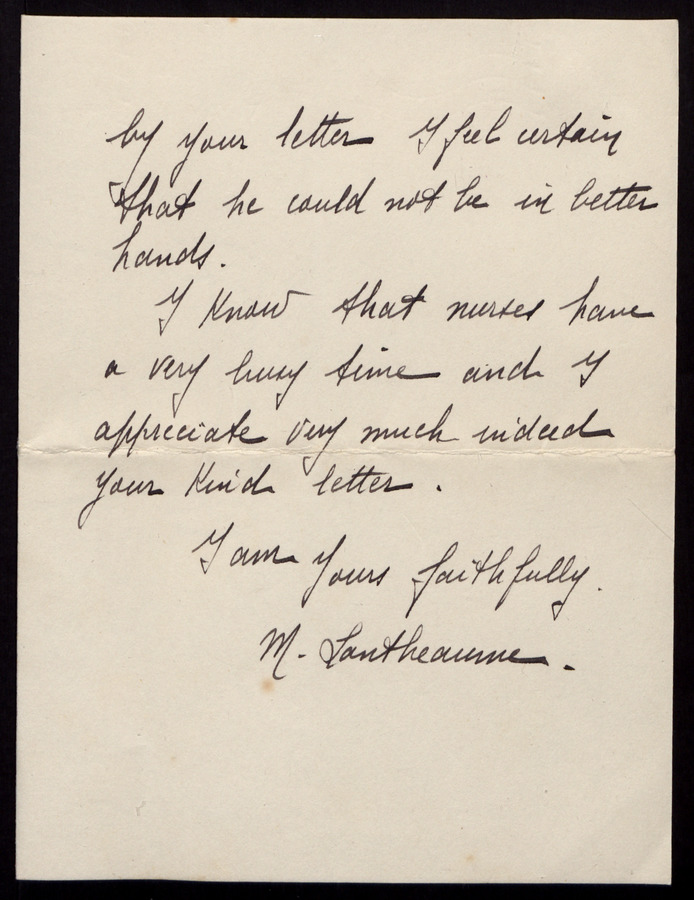 by your letter I feel certain
that he could not be in better
hands.
I know that nurses have
a very busy time and I
appreciate very much indeed
your kind letter.
I am Yours faithfully.
M. Lantheaume.